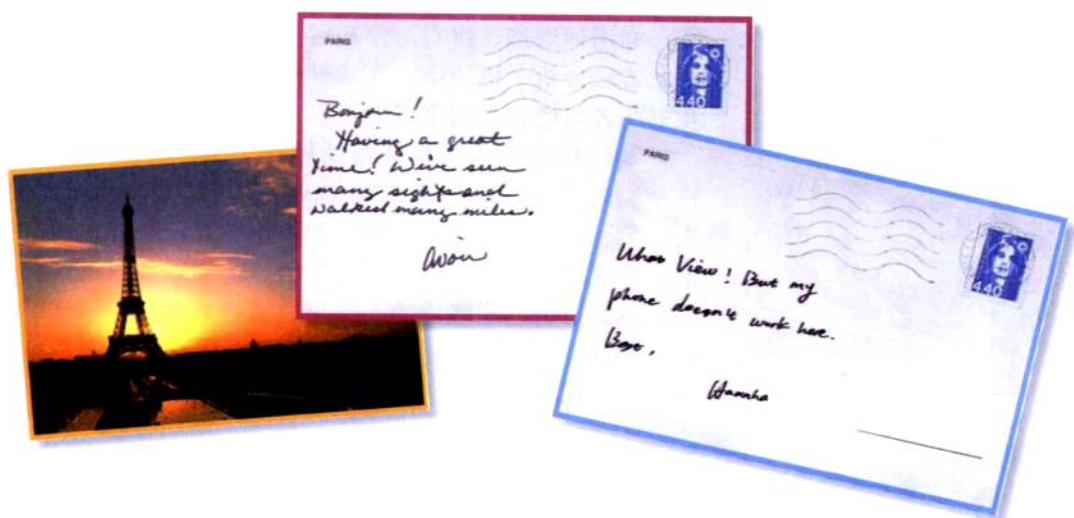 PARIS
4.40
Bonjour!
Having a great
time! We've seen
many sights and
walked many miles.
PARIS
4.40
What View! But my
phone doesn't work here.
Best,